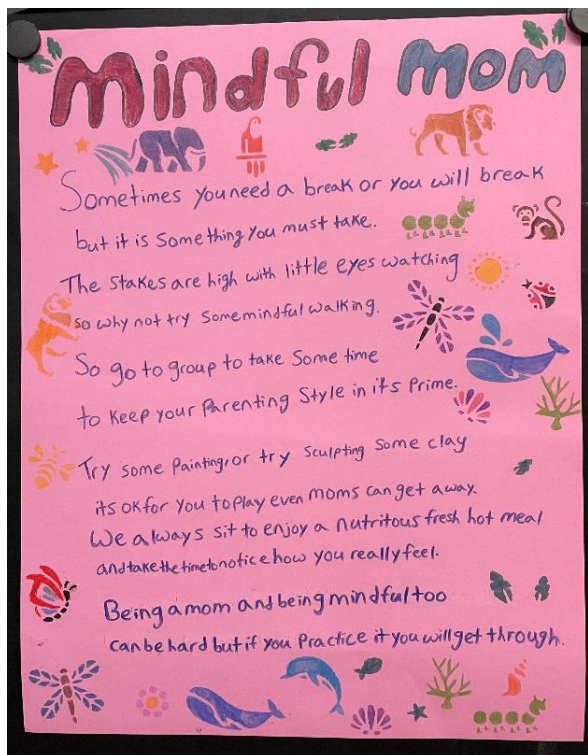 mindful mom
Sometimes you need a break or you will break
but it is something you must take.
The stakes are high with little eyes watching
so why not try some mindful walking.
So go to group to take some time
to keep your Parenting Style in its Prime.
Try some Painting, or try sculpting some clay
its ok for you to play even moms can get away.
We always sit to enjoy a nutritous fresh hot meal
and take the time to notice how you really feel.
Being a mom and being mindful too
can be hard but if you Practice it you will get through.